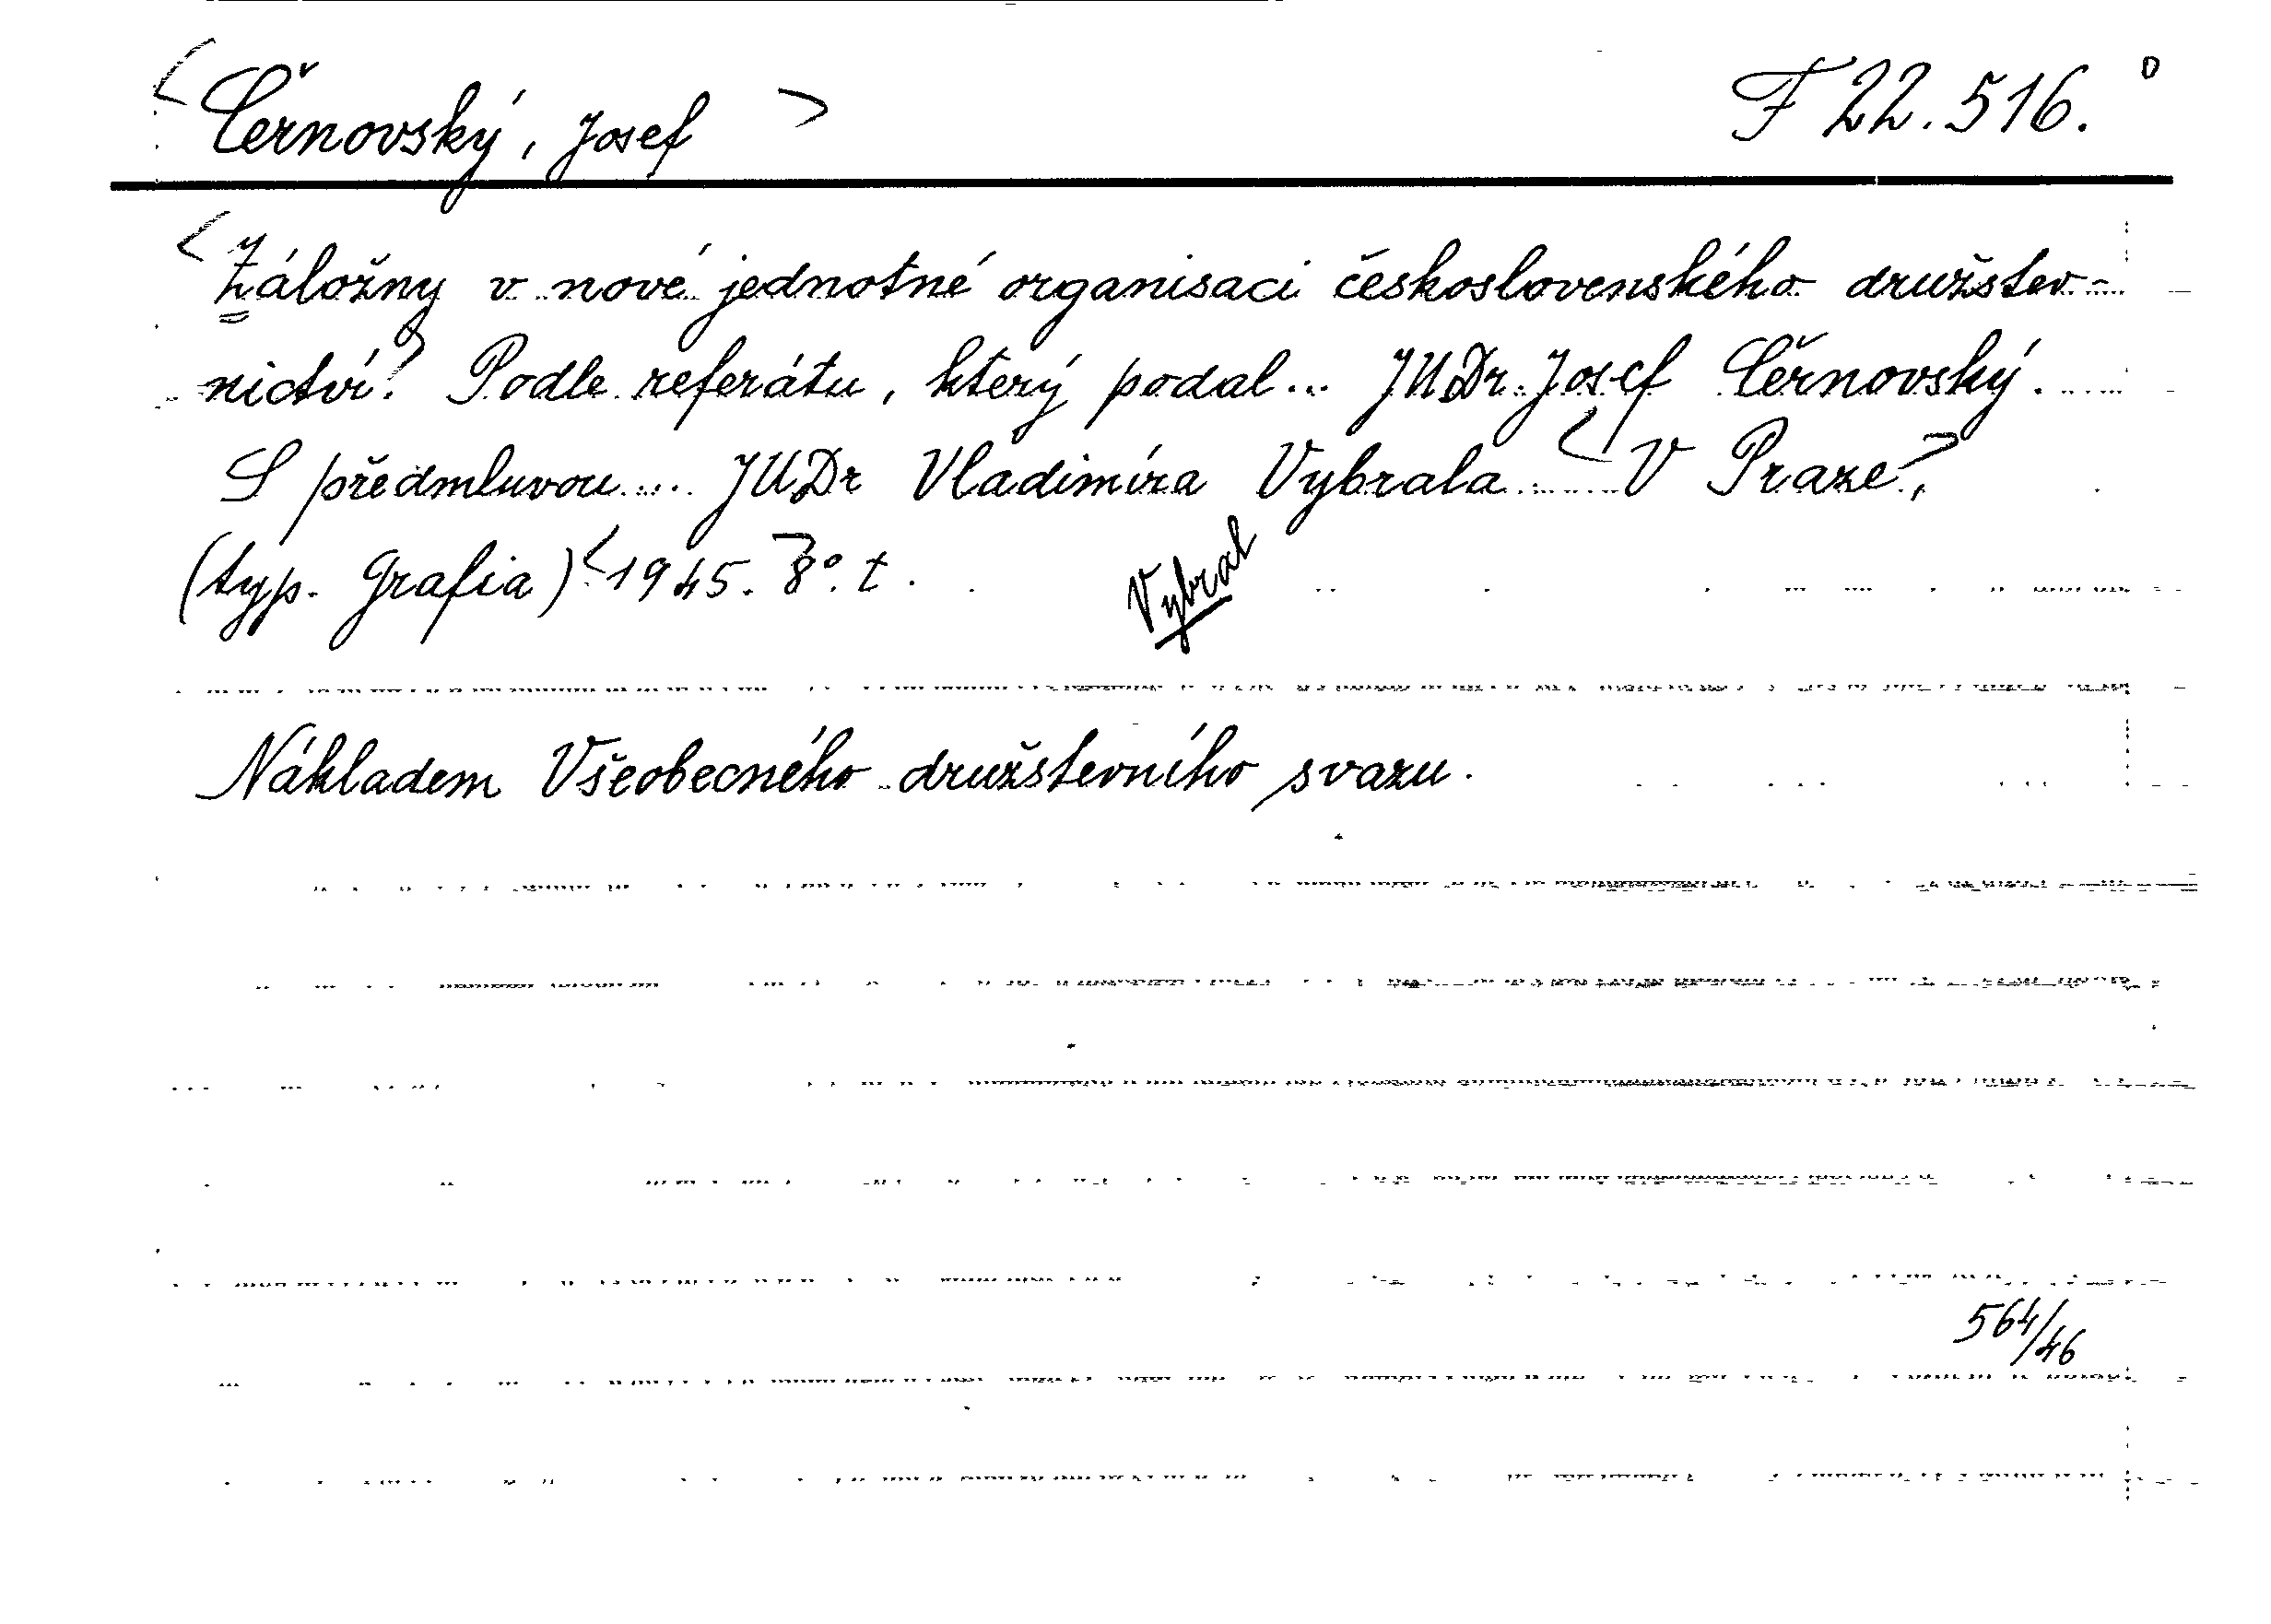 Černovský, Josef F 22.516.
Záložny v nové jednotné organisaci československého družstev-
nictví. Podle referátu, který podal... JUDr. Josef Černovský.
S předmluvou.... JUDr Vladimíra Vybrala V Praze,
(typ. Grafia) 1945. 8°. t.
Vybral
Nákladem Všeobecného družstevního svazu.
564/46